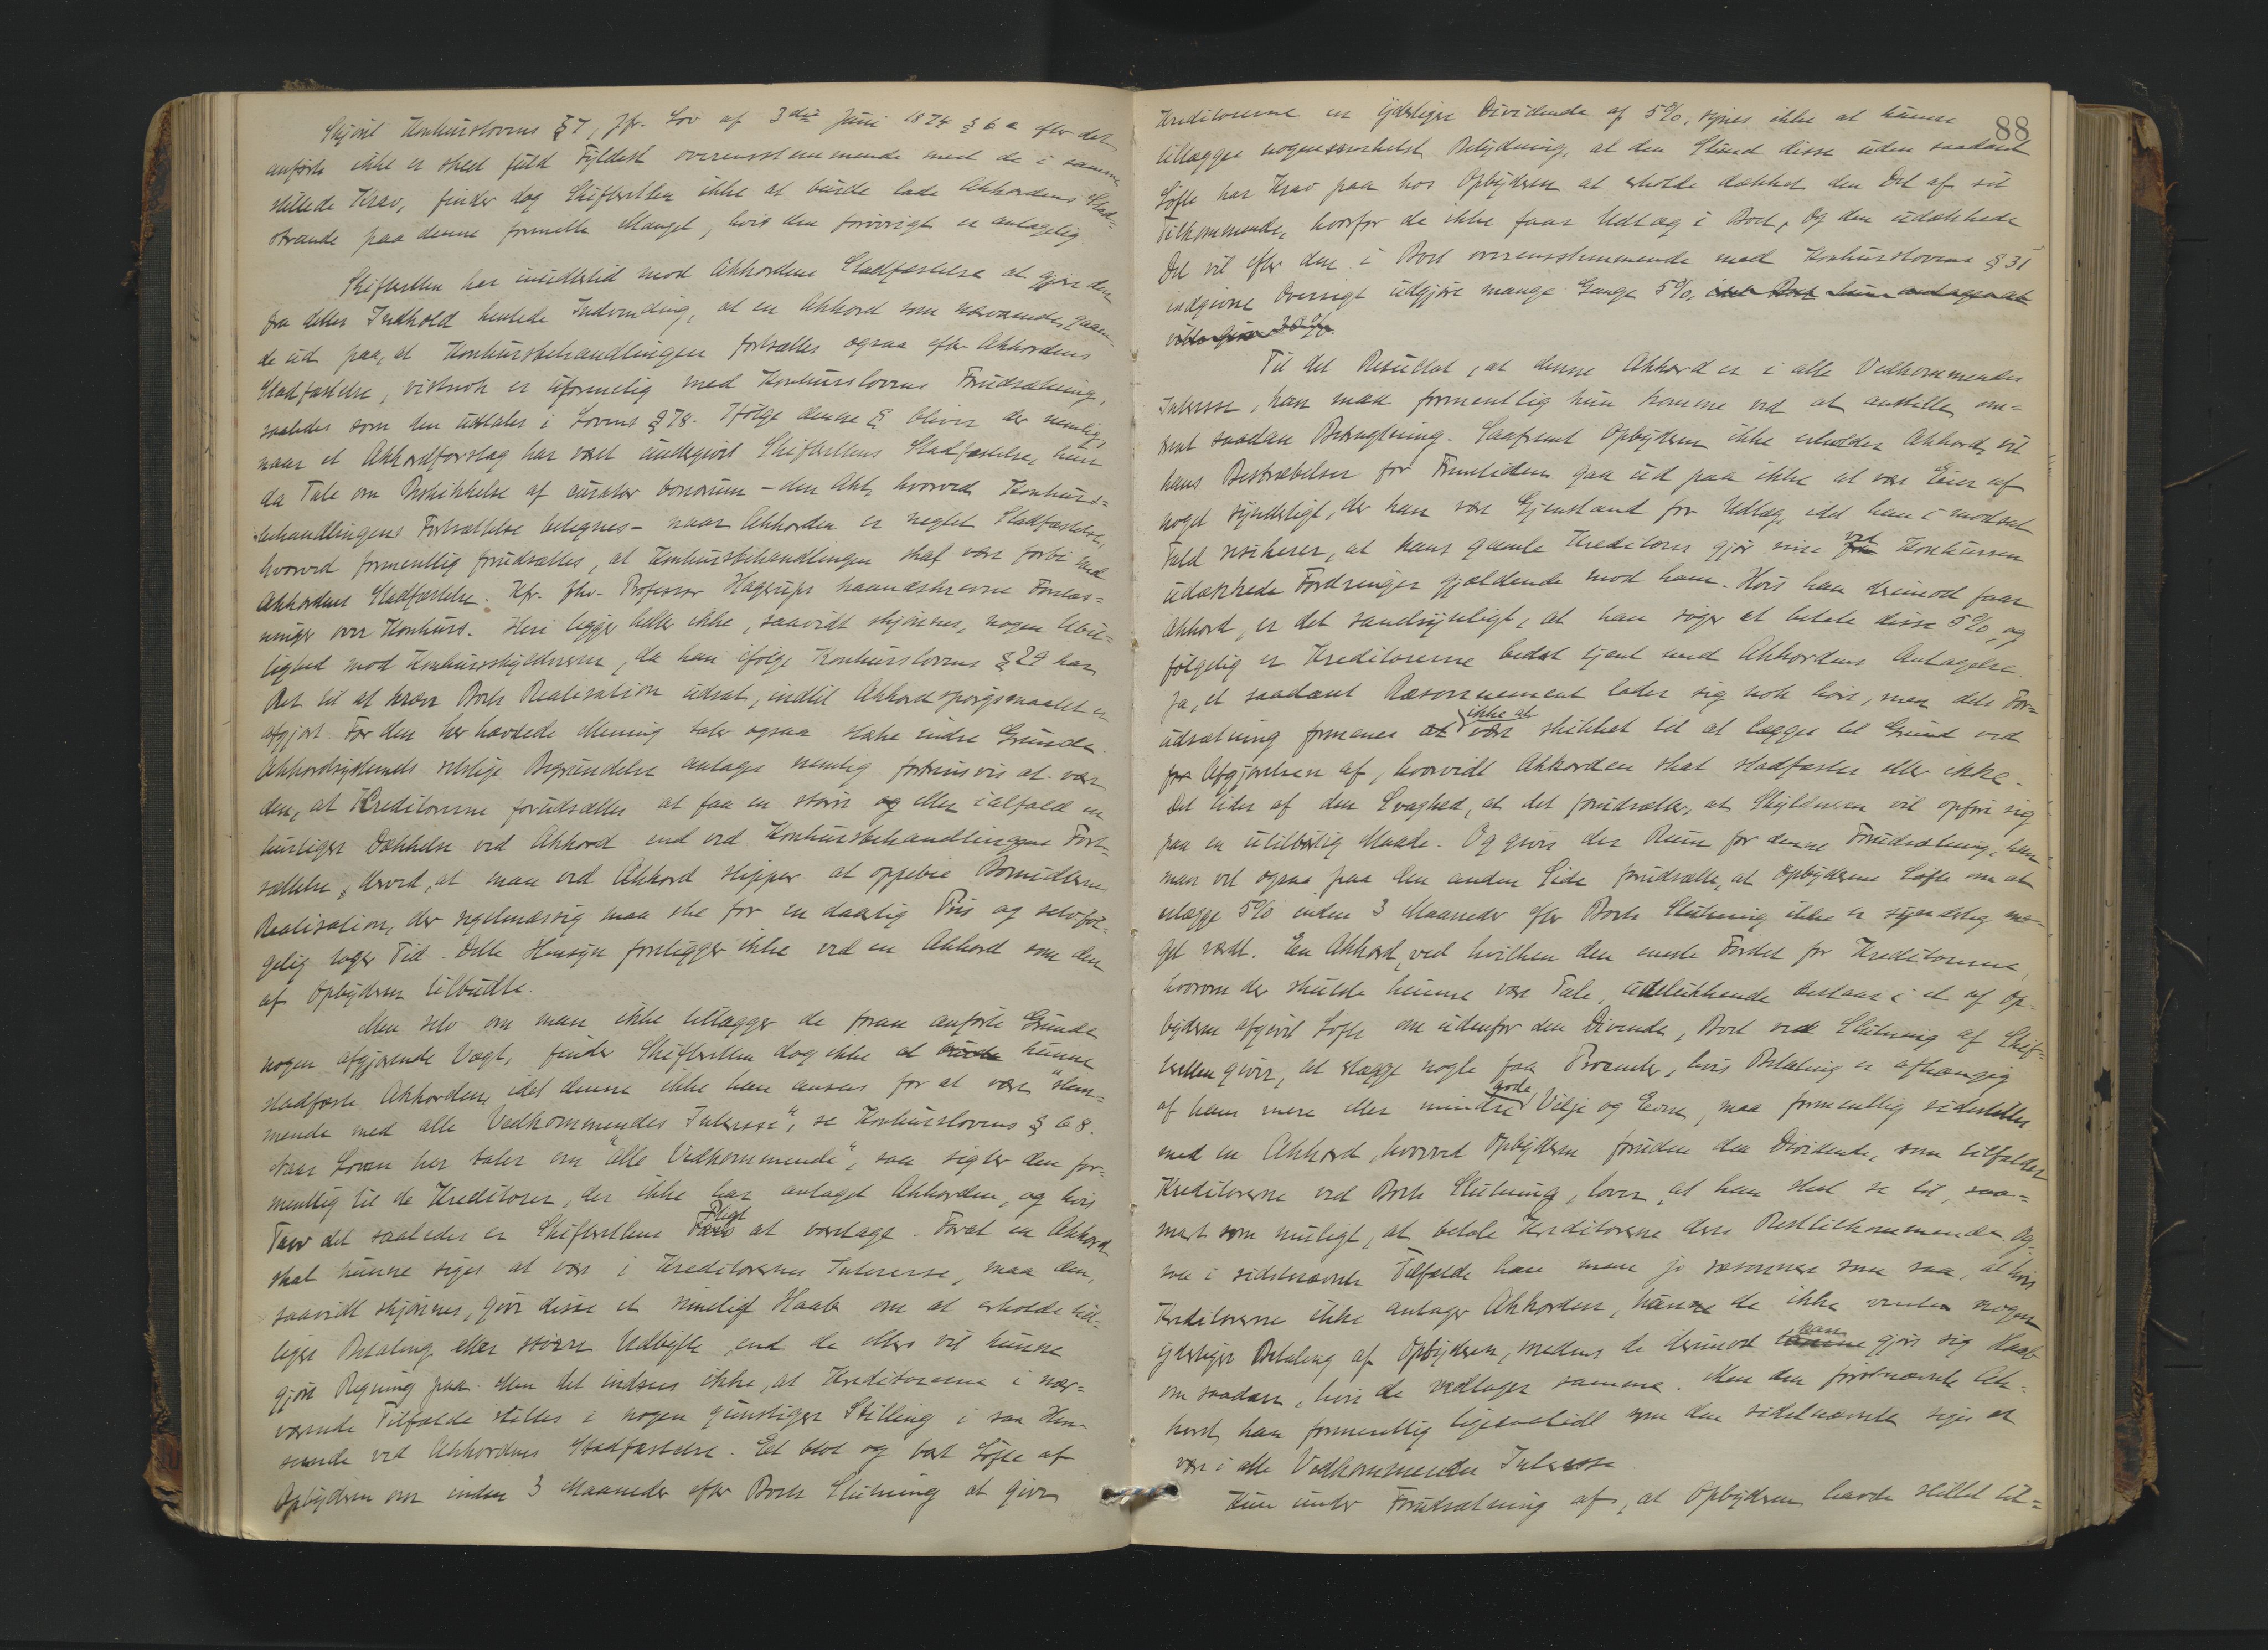 Skjønt Konkurslovens § 7, jfr. Lov af 3die Juni 1874 § 6 a efter det
anførte ikke er skeet fuld Fyldest overensstemmende med de i samme
stillede Krav, finder dog Skifteretten ikke at burde lade Akkordens Stad-
strande paa denne formelle Mangel, hvis den forøvrigt er antagelig
Skifteretten har imidlertid mod Akkordens Stadfæstelse at gjøre den
fra dettes Indhold hentede Indvending, at en Akkord som nærværende, gaaen-
de ud paa, at Konkursbehandlingen fortsættes ogsaa efter Akkordens
Stadfæstelse, vistnok er uforenelig med Konkurslovens Forudsætning,
saaledes som den udtales i Lovens § 78. Ifølge denne § bliver der nemlig,
naar et Akkordforslag har været undergivet Skifterettens Stadfæstelse, kun
da Tale om Beskikkelse af curator bonorum - den Akt, hvorved Konkurs=
behandlingens Fortsættelse betegnes - naar Akkorden er negtet Stadfæstelse,
hvorved formentlig forudsættes, at Konkursbehandlingen skal være forbi med
Akkordens Stadfæstelse. Kfr. fhv. Professor Hagerups haandskrevne Forelæs=
ninger over Konkurs. Heri ligger heller ikke, saavidt skjønnes, nogen Ubil=
lighed mod Konkursskyldneren, da han ifølge Konkurslovens § 29 har
Ret til at kræve Boets Realisation udsat, indtil Akkordspørgsmaalet er
afgjort. For den her hævdede Mening taler ogsaa stærke indre Grunde.
Akkordsystemets retslige Begrundelse antages nemlig fortrinsvis at være
den, at Kreditorerne forudsættes at faa en større og eller ialfald en
hurtigere Dækkelse ved Akkord end ved Konkursbehandlingens Fort-
sættelse, derved, at man ved Akkord slipper at oppebie Bomidlernes
Realisation, der regelmæssig maa ske for en daarlig Pris og selvføl-
gelig tager Tid. Dette Hensyn foreligger ikke ved en Akkord som den
af Opbyderen tilbudte.
Men selv om man ikke tillægger de foran anførte Grunde
nogen afgjørende Vægt, finder Skifteretten dog ikke at burde kunne
stadfæste Akkorden, idet denne ikke kan ansees for at være "stem=
mende med alle Vedkommendes Interesse", se Konkurslovens § 68.
Naar Loven her taler om "alle Vedkommende", saa sigter den for=
mentlig til de Kreditorer, der ikke har antaget Akkorden, og hvis
Tarv det saaledes er Skifterettens Pligt at varetage. Forat en Akkord
skal kunne siges at være i Kreditorernes Interesse, maa den,
saavidt skjønnes, give disse et rimeligt Haab om at erholde tid-
ligere Betaling eller større Udbytte, end de ellers vil kunne
gjøre Regning paa. Men det indsees ikke, at Kreditorerne i nær=
værende Tilfælde stilles i nogen gunstigere Stilling i saa Hen-
seende ved Akkordens Stadfæstelse. Et blot og bart Løfte af
Opbyderen om inden 3 Maaneder efter Boets Slutning at give
88
Kreditorerne en yderligere Dividende af 5%, synes ikke at kunne
tillægges nogensomhelst Betydning, al den Stund disse uden saadant
Løfte har Krav paa hos Opbyderen at erholde dækket den Del af sit
Tilkommende, hvorfor de ikke faar Udlæg i Boet, og den udækkede
Del vil efter den i Boet overensstemmende med Konkurslovens § 31
indgivne Oversigt udgjøre mange Gange 5%,
Til det Resultat, at denne Akkord er i alle Vedkommendes
Interesse, kan man formentlig kun komme ved at anstille om=
trent saadan Betragtning. Saafremt Opbyderen ikke erholder Akkord, vil
hans Bestræbelser for Fremtiden gaa ud paa ikke at være Eier af
noget synderligt, der kan være Gjenstand for Udlæg, idet han i modsat
Fald risikerer, at hans gamle Kreditorer gjør sine ved Konkursen
udækkede Fordringer gjældende mod ham. Hvis han derimod faar
Akkord, er det sandsynligt, at han søger at betale disse 5%, og
følgelig er Kreditorerne bedst tjent med Akkordens Antagelse.
Ja, et saadant Ræsonnement lader sig nok høre, men dets For=
udsætning formenes ikke at være skikket til at lægges til Grund ved
for Afgjørelsen af, hvorvidt Akkorden skal stadfæstes eller ikke.
Det lider af den Svaghed, at det forudsætter, at Skyldneren vil opføre sig
paa en utilbørlig Maade. Og gives der Rum for denne Forudsætning, kan
man vel ogsaa paa den anden Side forudsætte, at Opbyderens Løfte om at
erlægge 5% inden 3 Maaneder efter Boets Slutning ikke er synderlig me-
get værdt. En Akkord, ved hvilken den eneste Fordel for Kreditorerne,
hvorom der skulde kunne være Tale, udelukkende bestaar i et af Op-
byderen afgivet Løfte om udenfor den Divende, Boet ved Slutning af Skif=
teretten giver, at erlægge nogle faa Procenter, hvis Betaling er afhængig
af hans mere eller mindre gode Vilje og Evne, maa formentlig sidestilles
med en Akkord, hvorved Opbyderen foruden den Dividende, som tilfalder
Kreditorerne ved Boets Slutning, lover, at han skal se til, saa=
snart som muligt, at betale Kreditorerne deres Resttilkommende. Og-
saa i sidstnævnte Tilfælde kan man jo ræsonnere som saa, at hvis
Kreditorerne ikke antager Akkorden, kunne de ikke vente nogen
yderligere Betaling af Opbyderen, medens de derimod kan gjøre sig Haab
om saadan, hvis de vedtager samme. Men den førstnævnte Ak-
kord kan formentlig ligesaalidt som den sidstnævnte siges at
være i alle Vedkommendes Interesse.
Kun under Forudsætning af, at Opbyderen havde stillet til=